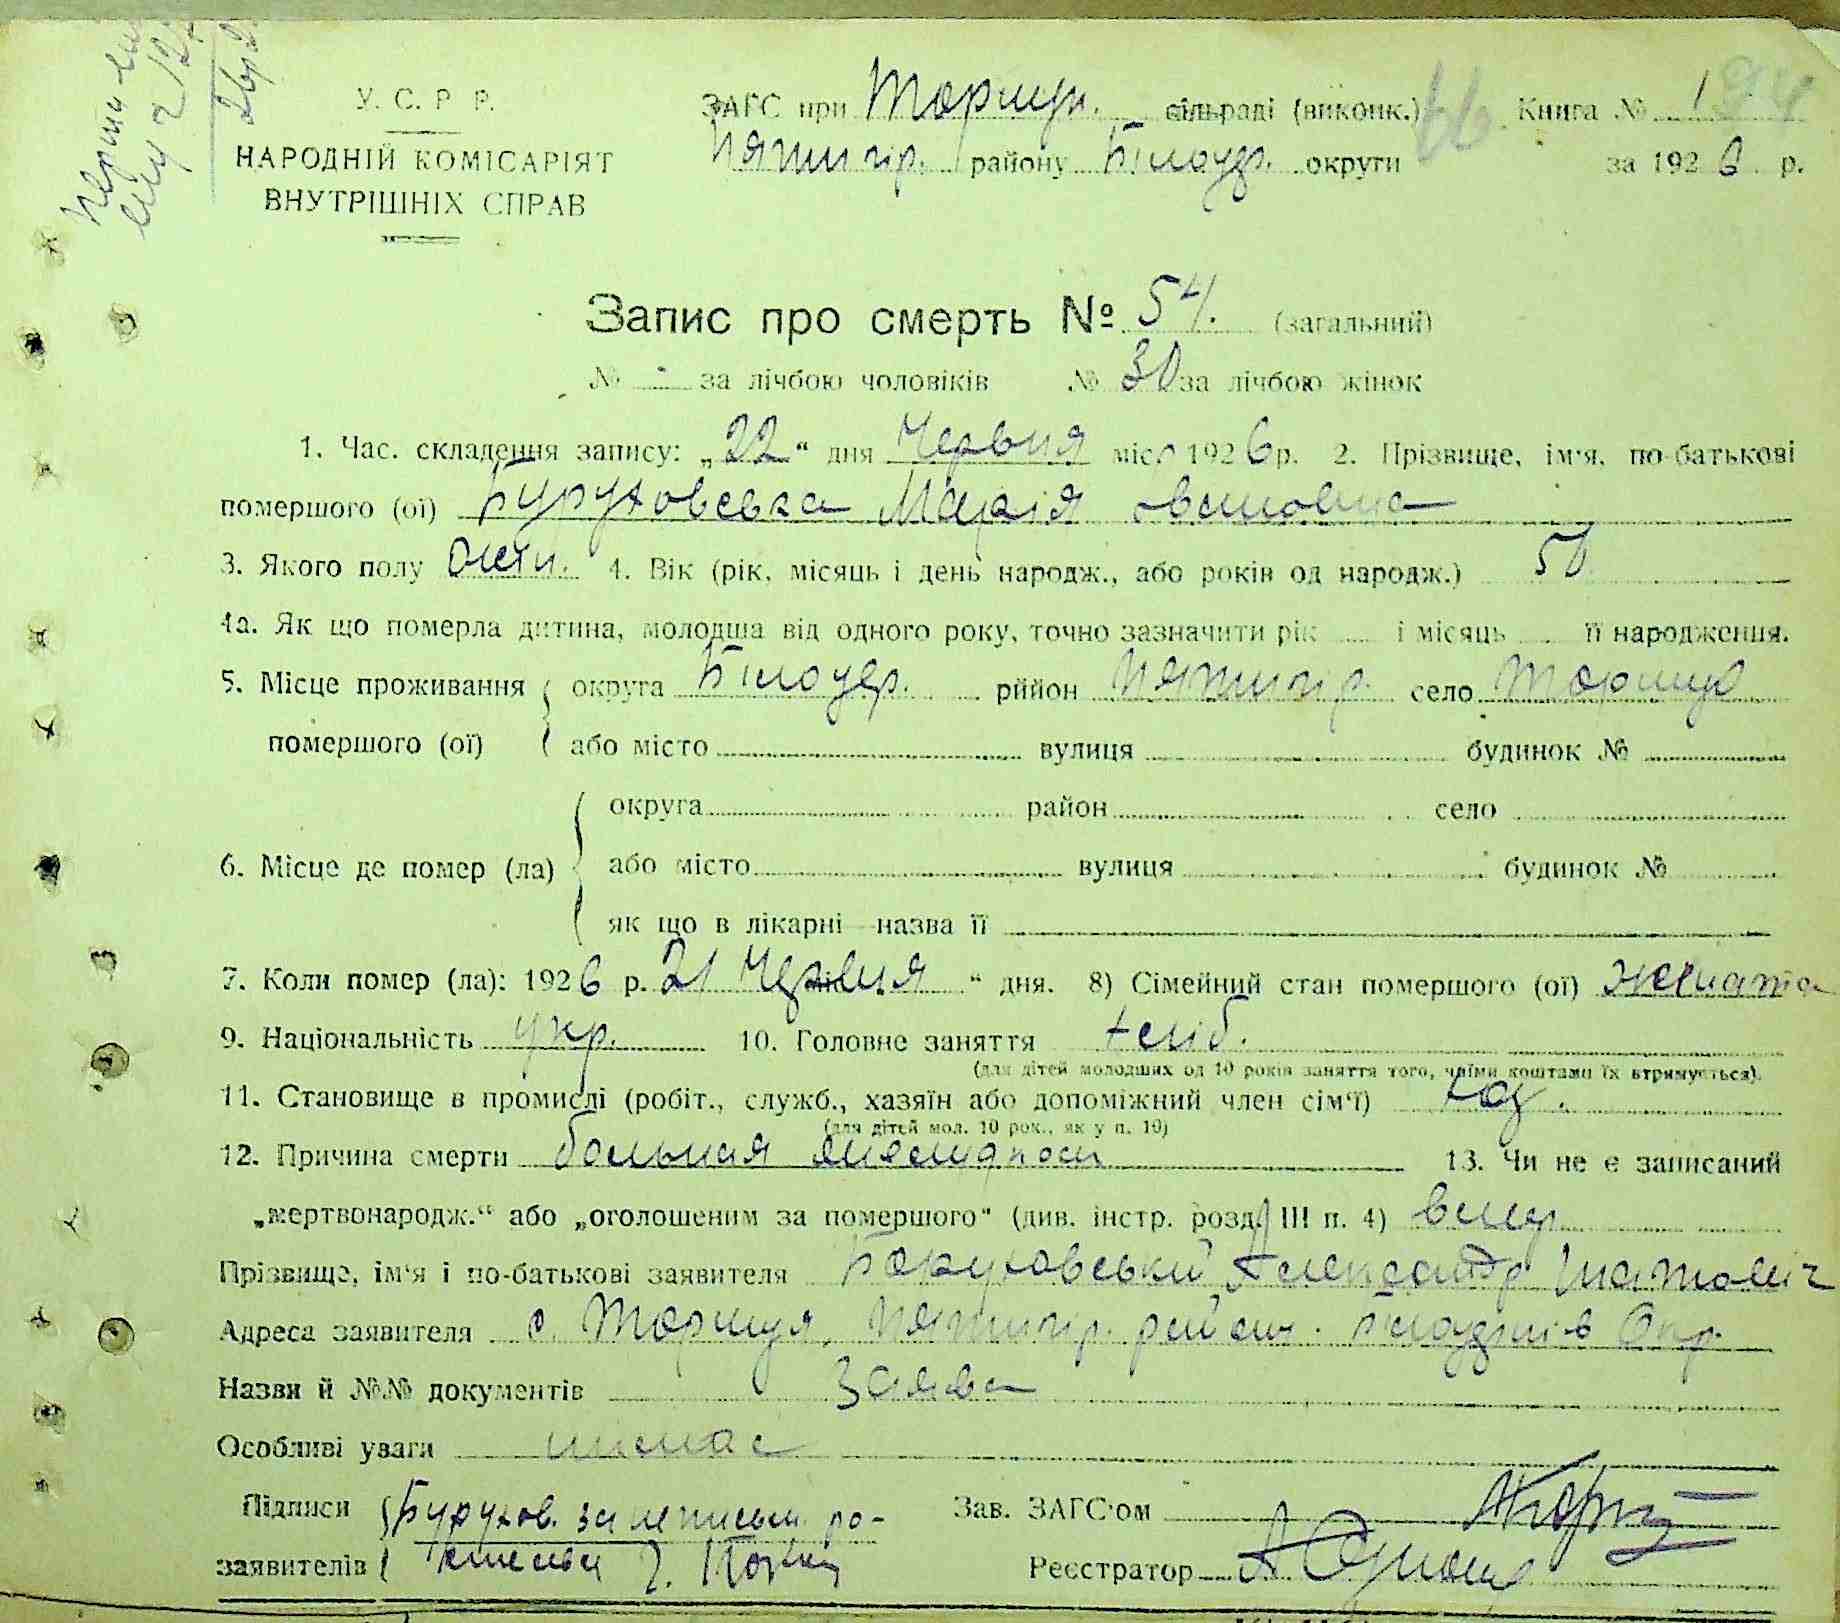 У. С. Р Р.
НАРОДНІЙ КОМІСАРІЯТ
ВНУТРІШНІХ СПРАВ
ЗАГС при Торчиц. сільраді (виконк.) 66 Книга № 1
Пятигір. району Білоцер. округи за 1926 р.
Запис про смерть № 54. (загальний)
№ - за лічбою чоловіків № 30 за лічбою жінок
1. Час. складення запису: „22“ дня Червня міс. 1926 р. 2. Прізвище, ім'я, по-батькові
помершого (ої) Буруховська Марія
3. Якого полу 4. Вік (рік, місяць і день народж., або років од народж.) 50
4а. Як що померла дитина, молодша від одного року, точно зазначити рік і місяць її народження.
5. Місце проживання округа Білоцер. рййон Пятигір. село Торчиця
помершого (ої) або місто вулиця будинок №
округа район село
6. Місце де помер (ла) або місто вулиця будинок №
як що в лікарні назва її
7. Коли помер (ла): 1926 р. 21 Червня “ дня. 8) Сімейний стан помершого (ої) жената
9. Національність укр. 10. Головне заняття хліб.
(для дітей молодших од 10 років заняття того, чиїми коштами їх втримується).
11. Становище в промислі (робіт., служб., хазяїн або допоміжний член сім'ї) хаз.
(для дітей мол. 10 рок., як у п. 10)
12. Причина смерти больная 13. Чи не є записаний
„мертвонародж.“ або „оголошеним за помершого“ (див. інстр. розд. III п. 4) вмер
Прізвище, ім'я і по-батькові заявителя Буруховський Александр Гнатович
Адреса заявителя с. Торчиця, Пятигір. район. Окр.
Назви й №№ документів заява
Особливі уваги немає
Підписи Бурухов. за неписьм. ро-
заявителів
Зав. ЗАГС'ом
Реєстратор